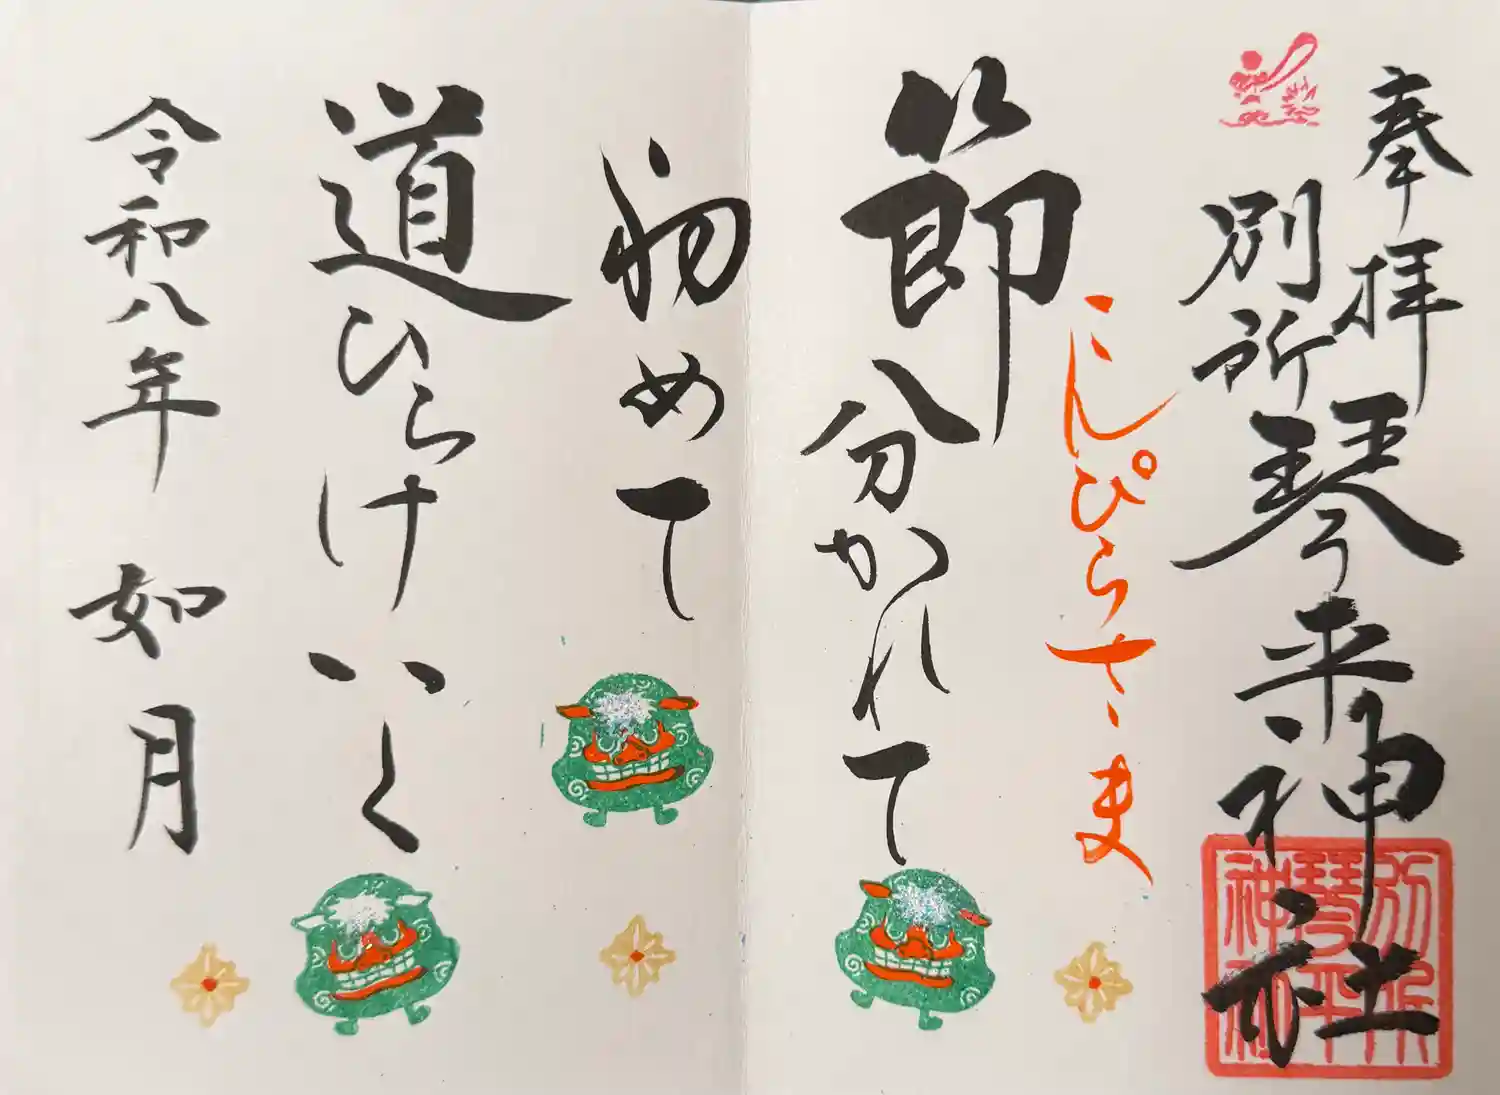 奉拝
別所琴平神社
こんぴらさま
節分かれて
初めて
道ひらけいく
令和八年 如月
別所琴平神社